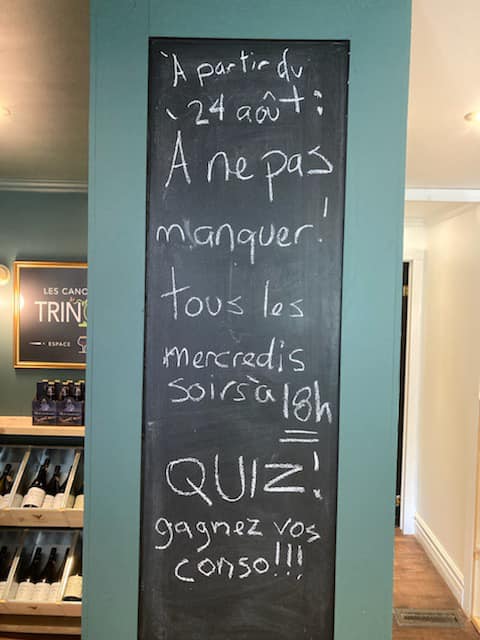 À partir du
24 août:
À ne pas
manquer!
tous les
mercredis
soirs à 18h
QUIZ!
gagnez vos
conso!!!
LES CANO
TRIN
ESPACE